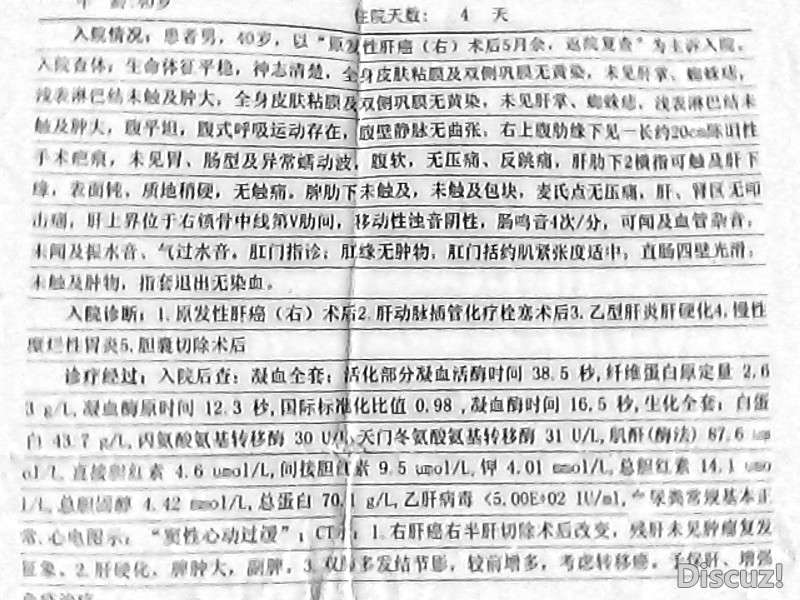 年 龄:40岁
住院天数： 4 天
入院情况：患者男，40岁，以“原发性肝癌（右）术后5月余，返院复查”为主诉入院。
入院查体：生命体征平稳，神志清楚，全身皮肤粘膜及双侧巩膜无黄染，未见肝掌、蜘蛛痣，
浅表淋巴结未触及肿大，全身皮肤粘膜及双侧巩膜无黄染，未见肝掌、蜘蛛痣，浅表淋巴结未
触及肿大，腹平坦，腹式呼吸运动存在，腹壁静脉无曲张，右上腹肋缘下见一长约20cm陈旧性
手术疤痕，未见胃、肠型及异常蠕动波，腹软，无压痛、反跳痛，肝肋下2横指可触及肝下
缘，表面钝，质地稍硬，无触痛。脾肋下未触及，未触及包块，麦氏点无压痛，肝、肾区无叩
击痛，肝上界位于右锁骨中线第V肋间，移动性浊音阴性，肠鸣音4次/分，可闻及血管杂音，
未闻及振水音、气过水音。肛门指诊：肛缘无肿物，肛门括约肌紧张度适中，直肠四壁光滑，
未触及肿物，指套退出无染血。
入院诊断：1.原发性肝癌（右）术后2.肝动脉插管化疗栓塞术后3.乙型肝炎肝硬化4.慢性
糜烂性胃炎5.胆囊切除术后
诊疗经过：入院后查：凝血全套：活化部分凝血活酶时间 38.5 秒,纤维蛋白原定量 2.6
3 g/L,凝血酶原时间 12.3 秒,国际标准化比值 0.98 ,凝血酶时间 16.5 秒,生化全套：白蛋
白 43.7 g/L,丙氨酸氨基转移酶 30 U/L,天门冬氨酸氨基转移酶 31 U/L,肌酐(酶法) 87.6 um
ol/L,直接胆红素 4.6 umol/L,间接胆红素 9.5 umol/L,钾 4.01 mmol/L,总胆红素 14.1 umo
l/L,总胆固醇 4.42 mmol/L,总蛋白 70.1 g/L,乙肝病毒 <5.00E+02 IU/ml,尿粪常规基本正
常.心电图示：“窦性心动过缓”；CT示：1.右肝癌右半肝切除术后改变，残肝未见肿瘤复发
征象。2.肝硬化，脾肿大，副脾。3.双肺多发结节影，较前增多，考虑转移癌。予保肝、增强
免疫治疗
Discuz!